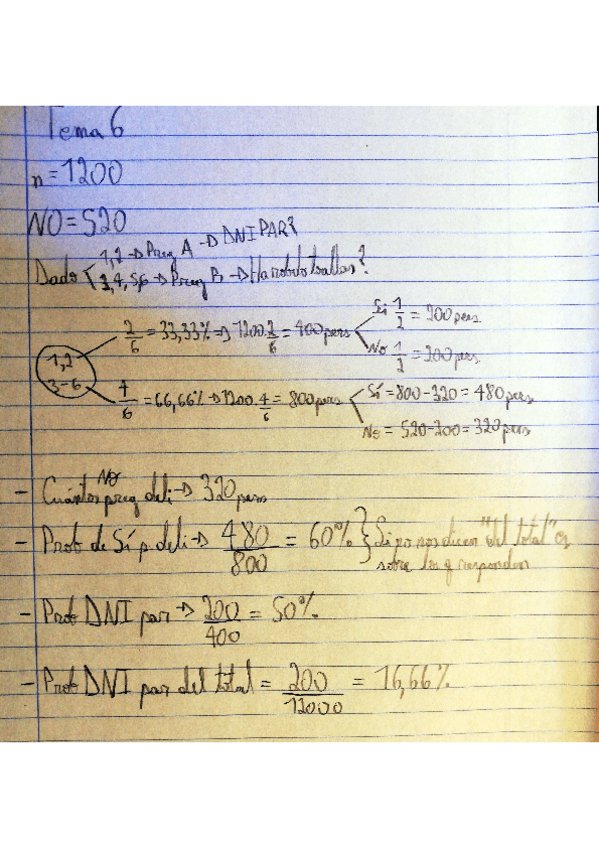 Tema 6
n=1200
NO=520
Dado { 1,2 → Preg A → DNI PAR?
3,4,5,6 → Preg B → Ha robado toallas?
1,2 2/6 = 33,33% → 1200·2/6 = 400 pers Sí 1/2 = 200 pers
No 1/2 = 200 pers
3-6 4/6 = 66,66% → 1200·4/6 = 800 pers Sí = 800-320 = 480 pers
No = 520-200 = 320 pers
- Cuántos NO preg deli → 320 pers
- Prob de Sí p. deli → 480/800 = 60% } Si no nos dicen "del total" es
sobre los q responden
- Prob DNI par → 200/400 = 50%
- Prob DNI par del total = 200/12000 = 16,66%